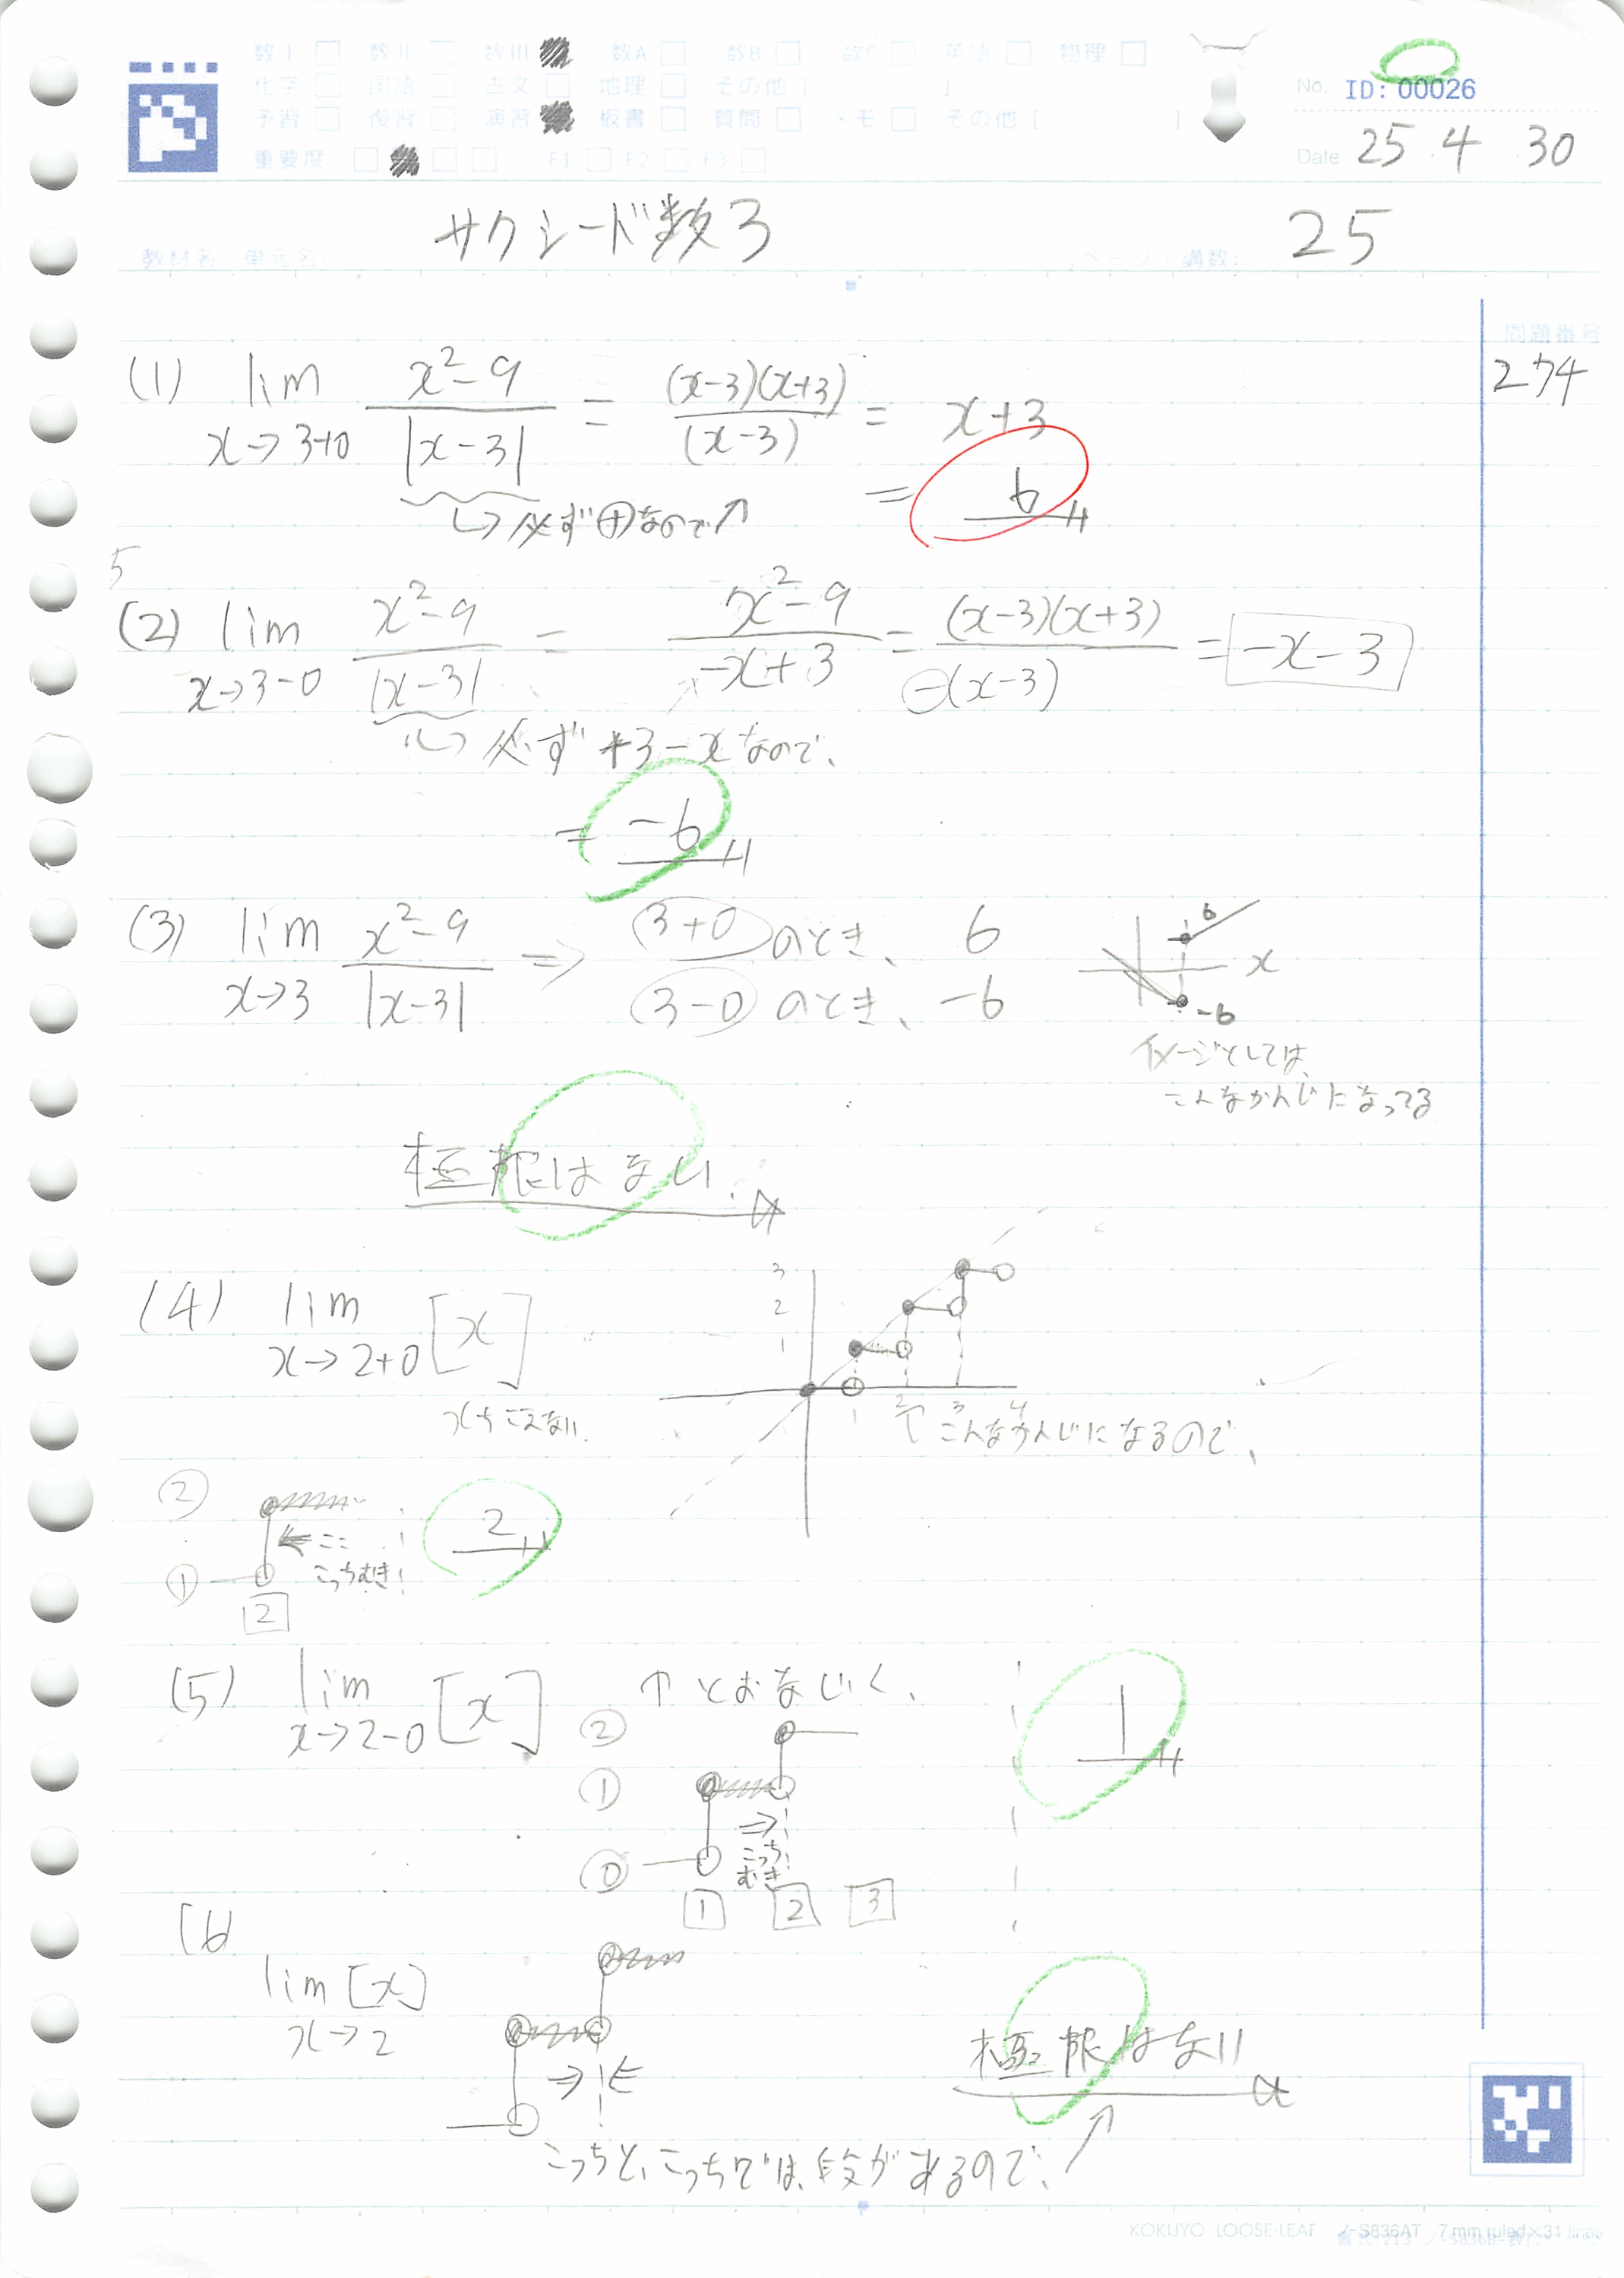 数I 数II 数III 数A 数B 数C 英語 物理
化学 国語 古文 地理 その他 [ ]
予習 復習 演習 板書 質問 メモ その他 [ ]
重要度 F1 F2 F3
No. ID: 00026
Date 25 4 30
教材名・単元名: サクシード数3
ページ・講数: 25
問題番号
274
(1) lim x→3+0 x²-9 / |x-3| = (x-3)(x+3) / (x-3) = x+3
= 6
↳必ず⊕なので↑
5
(2) lim x→3-0 x²-9 / |x-3| = x²-9 / -x+3 = (x-3)(x+3) / -(x-3) = -x-3
↳必ず+3-xなので、
= -6
(3) lim x→3 x²-9 / |x-3| ⇒ 3+0のとき、 6
3-0のとき、 -6
6
x
-6
イメージとしては、
こんなかんじになってる
極限はない.
(4) lim x→2+0 [x]
3
2
1
1 2 3 4
xをこえない
↑こんなかんじになるので、
② ①
←ここ
こっちむき!
2
2
(5) lim x→2-0 [x] ↑とおなじく、
② ① ⓪
⇒
こっち
むき!
1 2 3
1
(6
lim x→2 [x]
⇒ ⇐
極限はない
こっちと、こっちでは、段があるので、↗
KOKUYO LOOSE-LEAF ノ-S836AT 7mm ruled×31 lines